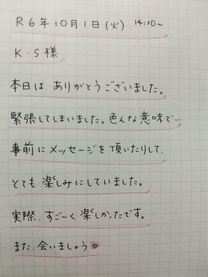 R6年10月1日(火) 14:10~
K.S様
本日は ありがとうございました。
緊張してしまいました。色んな意味で…
事前にメッセージを頂いたりして、
とても楽しみにしていました。
実際、すごーく楽しかったです。
また、会いましょう